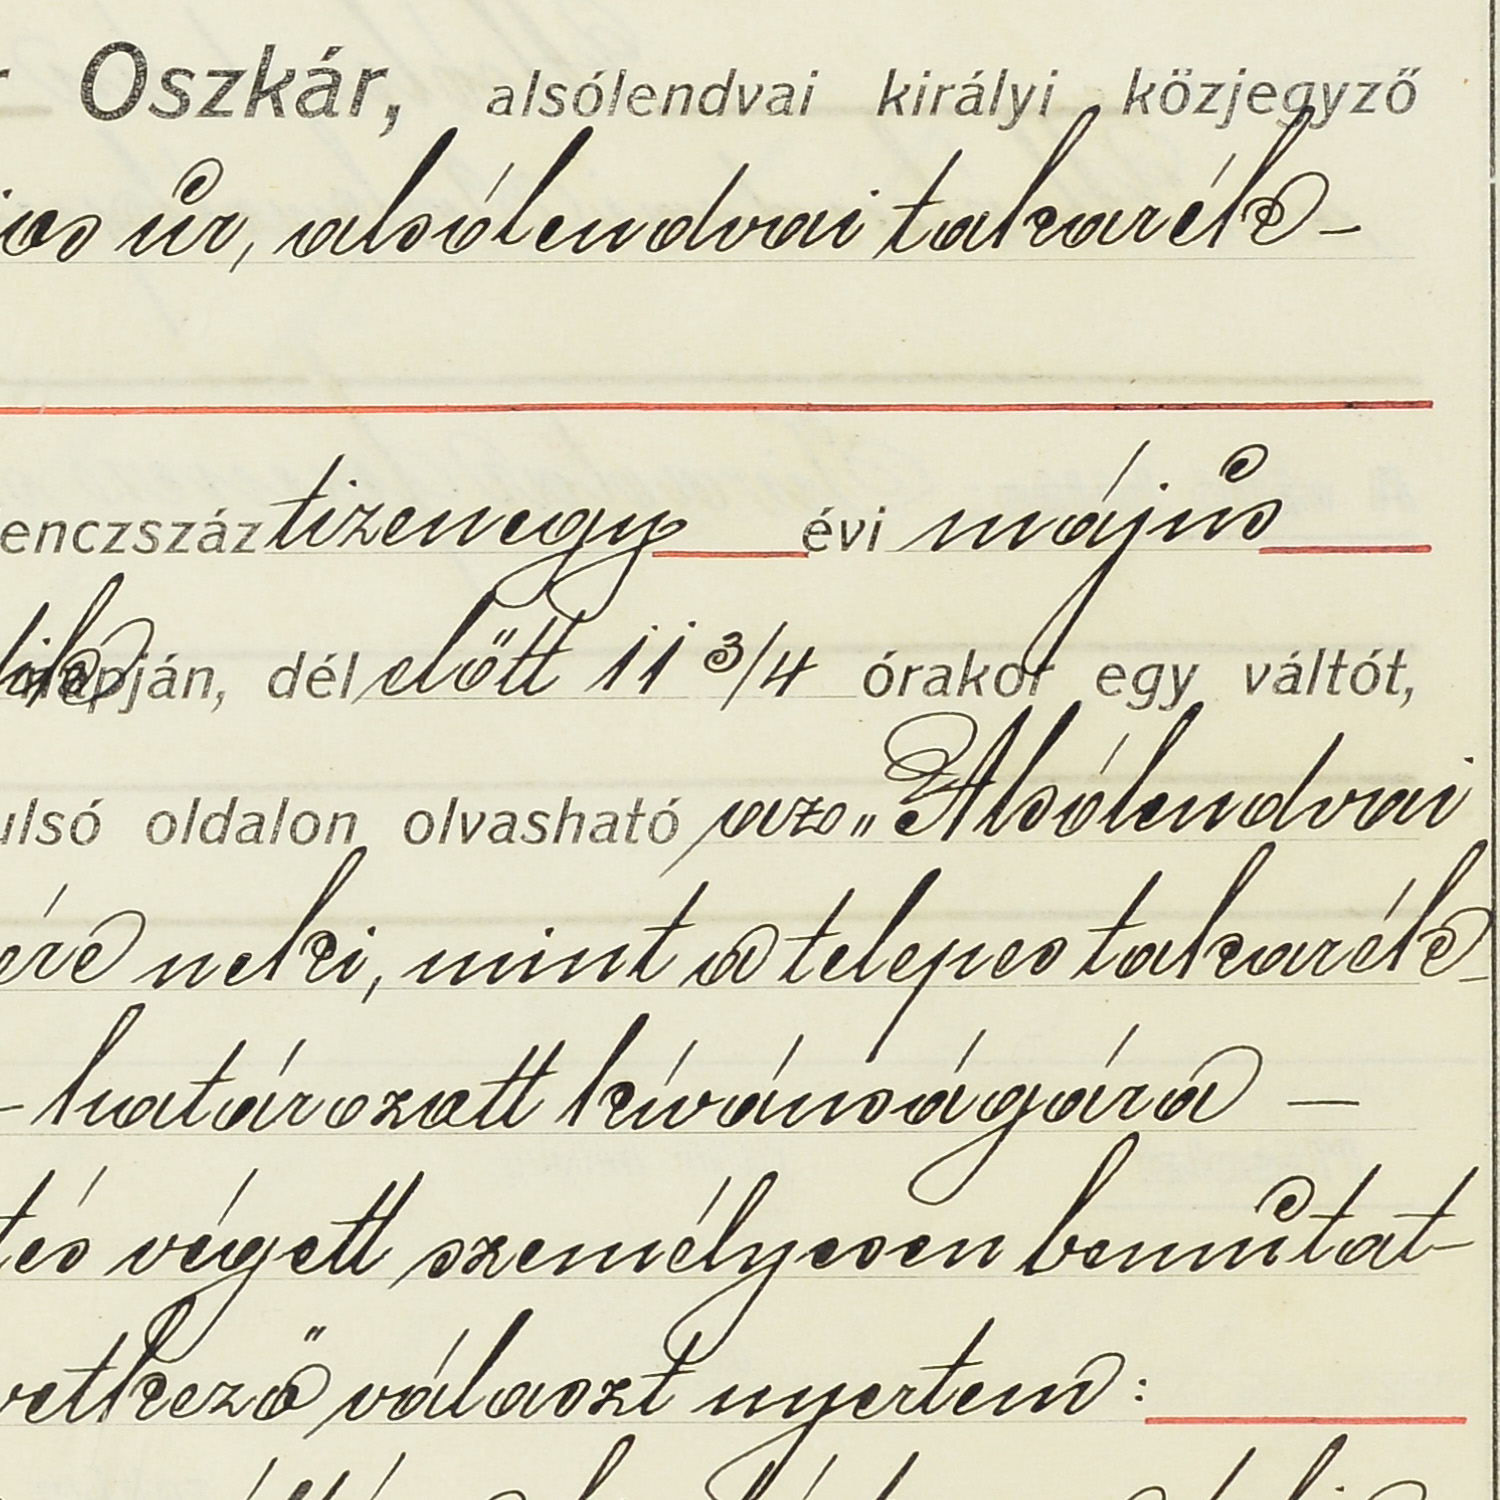 Oszkár, alsólendvai királyi közjegyző
úr, alsólendvai takarék-
enczszáz tizenegy évi május
dik napján, dél előtt 11 3/4 órakor egy váltót,
ulsó oldalon olvasható az „Alsólendvai
ére neki, mint a telepes takarék-
- határozott kívánságára —
tés végett személyesen bemutat-
vetkező választ nyertem: